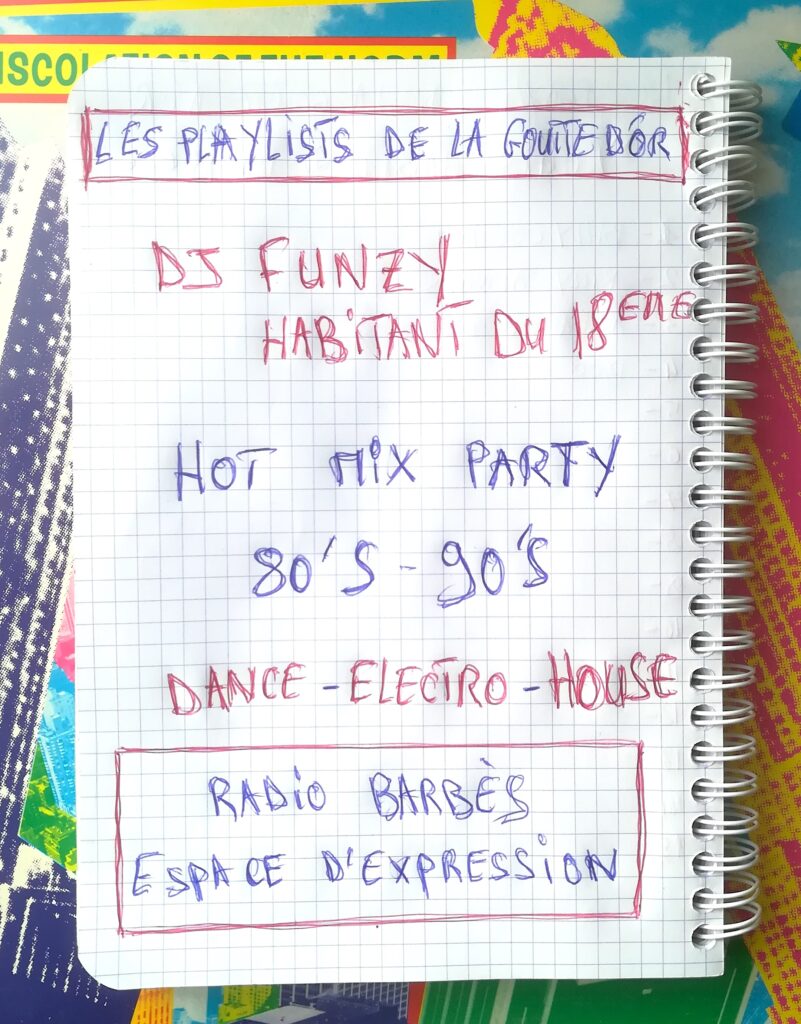 LES PLAYLISTS DE LA GOUTE D'ÔR
DJ FUNZY
HABITANT DU 18EME
HOT MIX PARTY
80'S - 90'S
DANCE - ELECTRO - HOUSE
RADIO BARBÈS
ESPACE D'EXPRESSION